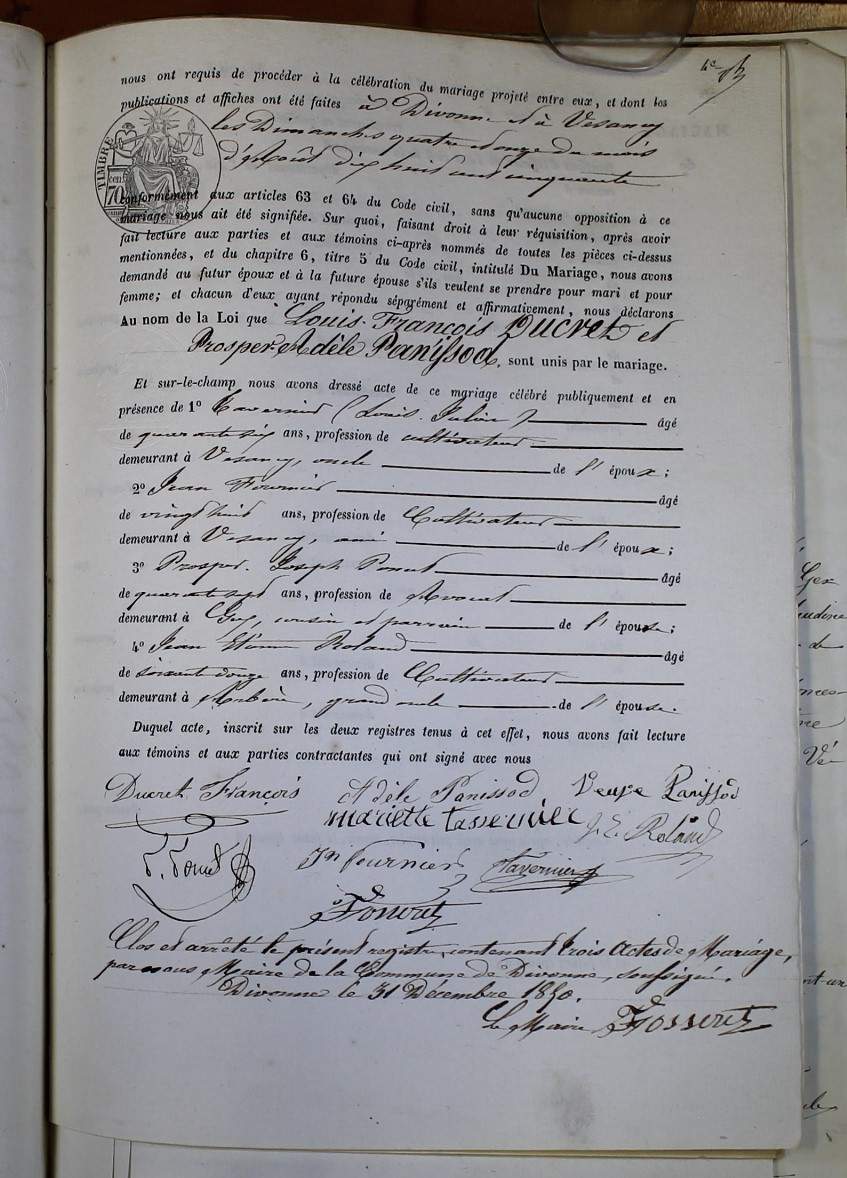 4e
nous ont requis de procéder à la célébration du mariage projeté entre eux, et dont les
publications et affiches ont été faites à Divonne et à Vesancy
les Dimanches quatre et onze du mois
d'Août dix huit cent cinquante
TIMBRE
70 cen.
conformément aux articles 63 et 64 du Code civil, sans qu'aucune opposition à ce
mariage nous ait été signifiée. Sur quoi, faisant droit à leur réquisition, après avoir
fait lecture aux parties et aux témoins ci-après nommés de toutes les pièces ci-dessus
mentionnées, et du chapitre 6, titre 5 du Code civil, intitulé Du Mariage, nous avons
demandé au futur époux et à la future épouse s'ils veulent se prendre pour mari et pour
femme; et chacun d'eux ayant répondu séparément et affirmativement, nous déclarons
Au nom de la Loi que Louis-François Ducret et
Prosper Adèle Panissod, sont unis par le mariage.
Et sur-le-champ nous avons dressé acte de ce mariage célébré publiquement et en
présence de 1° Tavernier (Louis Julien) âgé
de quarante six ans, profession de cultivateur
demeurant à Vesancy, oncle de l'époux;
2° Jean Fournier âgé
de vingt huit ans, profession de Cultivateur
demeurant à Vesancy, ami de l'époux;
3° Prosper Joseph Poncet âgé
de quarante sept ans, profession de Avocat
demeurant à Gex, cousin et parrain de l'épouse;
4° Jean Etienne Roland âgé
de soixante douze ans, profession de Cultivateur
demeurant à , grand oncle de l'épouse.
Duquel acte, inscrit sur les deux registres tenus à cet effet, nous avons fait lecture
aux témoins et aux parties contractantes qui ont signé avec nous
Ducret François Adèle Panissod Veuve Panissod
mariette tassernier J. E. Roland
P. Poncet Jn Fournier Tavernier
Fosseret
Clos et arrêté le présent registre, contenant trois Actes de Mariage,
par nous Maire de la Commune de Divonne, soussigné.
Divonne le 31 Décembre 1850.
Le Maire Fosseret
Gex
de